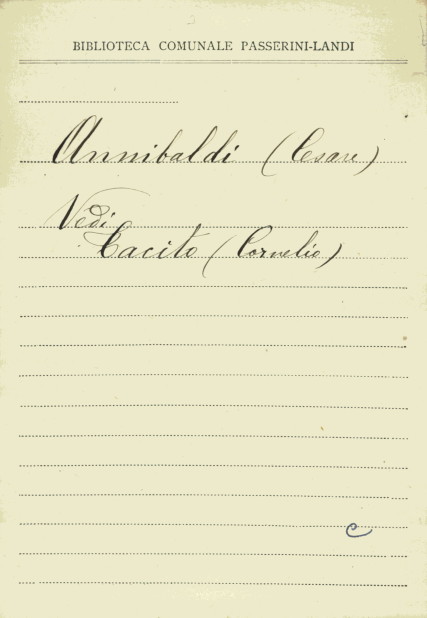 BIBLIOTECA COMUNALE PASSERINI-LANDI
Annibaldi (Cesare)
Vedi
Tacito (Cornelio)
C